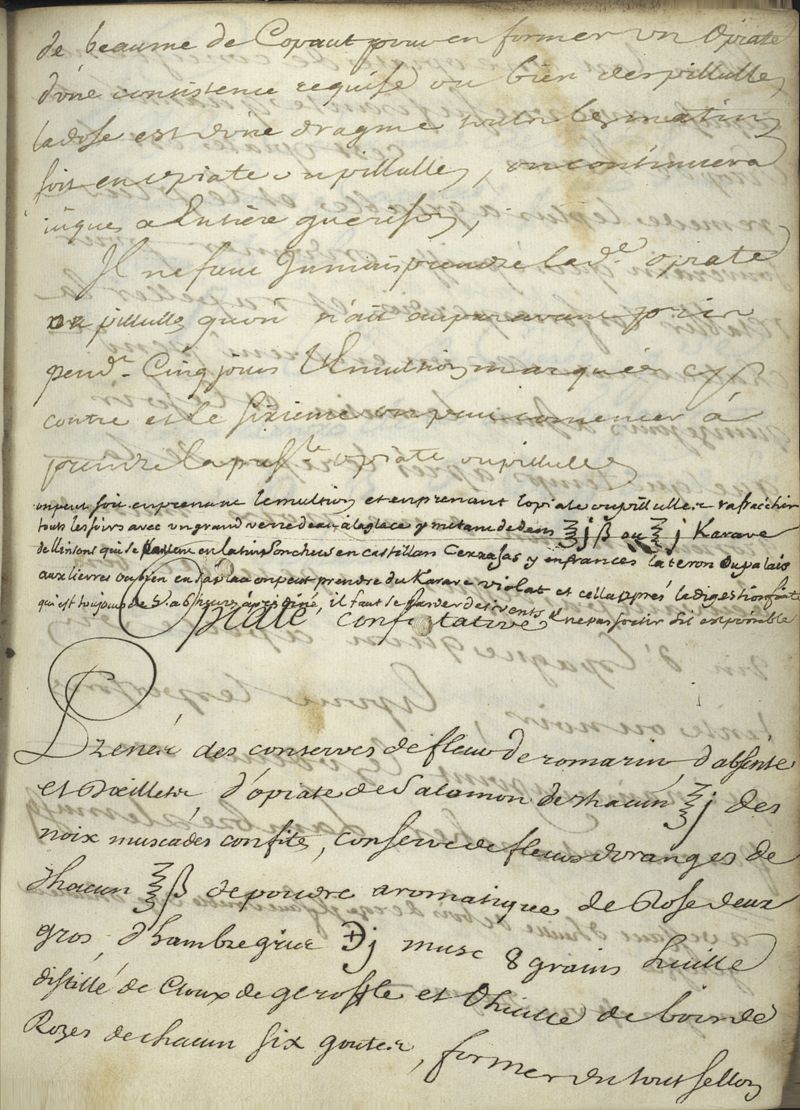 de beaume de Copaut pour en former un Opiate
d'une consistence requise ou bien des pillulles
la dose est d'une dragme toutes les matins
soit en opiate ou pillulles, on continuera
juques a Entiere guerison,
Il ne faut Jamais prendre la d.e opiate
ou pillulles qu'on n'ait auparavant pris
pend.t Cinq jours l'Emultion marquée cy
contre et le sixieme on peut comencer à
prendre la pres.te opiate ou pillulles
on peut soit en prenant lemultion et en prenant lopiate ou pillulles se rafrechir
touts les soirs avec un grand verre deau à la glace y metant dedans ℥jß ou ℥j Karave
qui se en latin Sonchus en castillan Cerrajas y en frances lateron ou palais
aux lievres ou bien en sa place on peut prendre du Karave violat et cella apprés la digestion faite
qui est toujours de 5. a 6 heures aprés diné, il faut se garder des vents et ne pas sortir sil est possible
Opiate confortative
Prenés des conserves de fleur de romarin, d'absente
et d'oeillets, d'opiate de Salamon de chacun ℥j des
noix muscades confites, conserve de fleurs doranges de
chacun ℥ß de poudre aromatiques de Rose deux
gros, d'hambre gris ℈j musc 8 grains huille
distillé de Cloux de geroffle et d'huille de bois de
Rozes de chacun six goutes, former du tout sellon